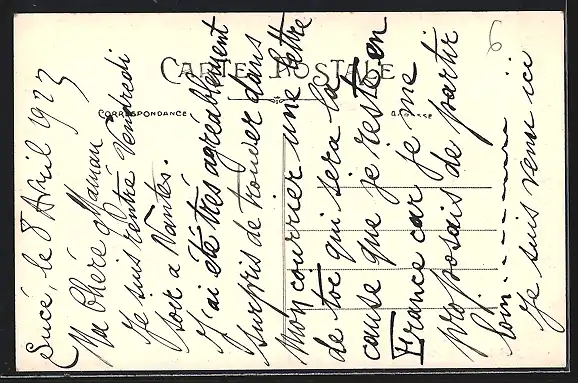 CARTE POSTALE
CORRESPONDANCE
ADRESSE
6
Sucé, le 8 Avril 1923
Ma Chère Maman
Je suis rentré Vendredi
soir a Nantes.
J'ai été très agreablement
surpris de trouver dans
mon courrier une lettre
de toi qui sera la
cause que je reste en
France car je me
proposais de partir
loin
Je suis venu ici